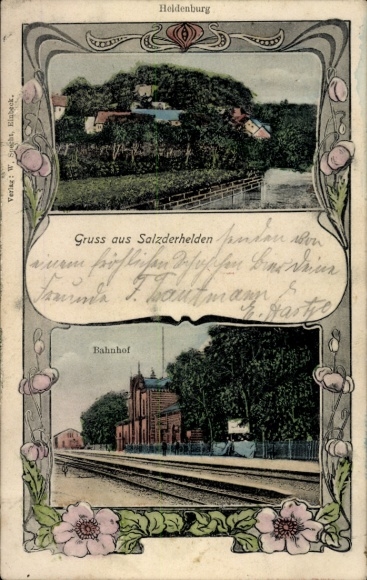 Heldenburg
Verlag: W. Specht, Einbeck.
Gruss aus Salzderhelden senden von
einem fröhlichen Schoppen Bier deine
Freunde F. Trautmann &
Bahnhof